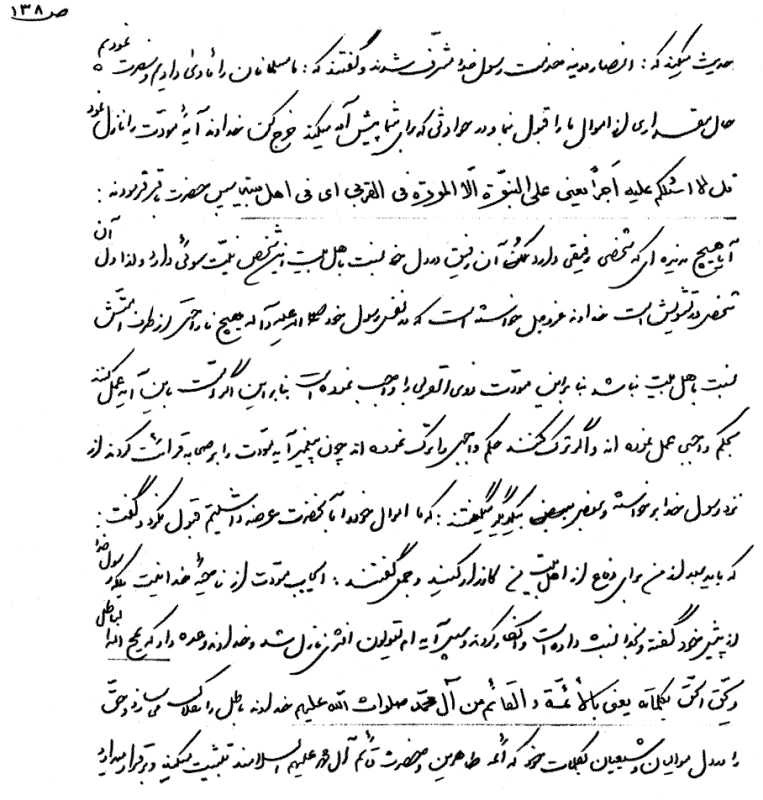 ص ۱۳۸
حدیث میکند که: انصار مدینه خدمت رسول خدا مشرف شدند و گفتند که: ما مسلمانان را مأوی دادیم و نصرت نمودیم
حال مقداری از اموال ما را قبول نما و در حوادثی که برای شما پیش آمد میکند خرج کن خداوند آیهٔ مودت را نازل نمود
قل لا اسئلکم علیه اجراً یعنی علی النبوّة الّا المودة فی القربی ای فی اهل بیتی سپس حضرت باقر فرمودند:
آیا هیچ دیده ای که شخصی رفیقی دارد آن رفیق در دل خود نسبت باهل بیت این شخص نیّت سوئی دارد و لذا دل آن
شخص در تشویش است خداوند عزوجل خواسته است که در نفس رسول خود صلی الله علیه و آله هیچ ناراحتی از طرف امتش
نسبت باهل بیت نباشد بنابراین مودت ذوی القربی را واجب نموده است بنابراین اگر امت باین آیه عمل کنند
بحکم واجبی عمل نموده اند و اگر ترک کنند حکم واجبی را ترک نموده اند چون پیغمبر آیه مودّت را بر صحابه قرائت کردند از
نزد رسول خدا برخواسته و بعضی ببعض دیگر میگفتند: که ما اموال خود را بآنحضرت عرضه داشتیم قبول نکرد و گفت:
که باید بعد از من برای دفاع از اهل بیت من کارزار کنید و جمعی گفتند: ایجاب مودّت از ناحیهٔ خدا نیست بلکه رسول خدا
از پیش خود گفته و بخدا نسبت داده است و انکار کردند و سپس آیه ام یقولون افتری نازل شد و خداوند وعده داد که یمح الله الباطل
و یحق الحق بکلماته یعنی بالأئمّة و القائم من آل محمّد صلوات الله علیهم خداوند باطل را هلاک می سازد و حقّ
را در دل موالیان و شیعیان بکلمات خود که ائمه طاهرین و حضرت قائم آل محمد علیهم السلامند تثبیت میکند و برقرار میدارد